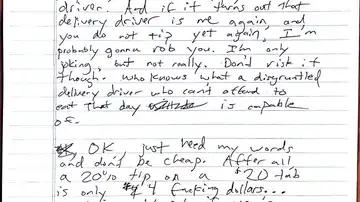 driver. And if it turns out that
delivery driver is me again, and
you do not tip yet again, I'm
probably gonna rob you. I'm only
joking, but not really. Don't risk it
though. Who knows what a disgruntled
delivery driver who can't afford to
eat that day is capable
of.
OK just heed my words
and don't be cheap. After all
a 20% tip on a $20 tab
is only $4 fucking dollars...